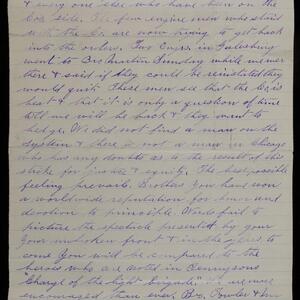 & every one else who have been on the
Cos side. The few engine men who staid
with the Co. are now trying to get back
into the orders. Two Engrs. in Galesburg
went to Bro Martin Sunday while we were
there & said if they could be reinstated they
would quit. These men see that the Co is
beat & that it is only a question of time
till we will be back & they want to
hedge. We did not find a man on the
system & there is not a man in Chicago
who has any doubts as to the result of this
strike for justice & equity. The best possible
feeling prevails. Brothers You have won
a worldwide reputation for honor and
devotion to principle. Words fail to
picture the spectacle presented by your
Your unbroken front & in the ages to
come You will be compared to the
heroes who are noted in Tennysons
"Charge of the light brigade". We are more
encouraged than ever. Bro.